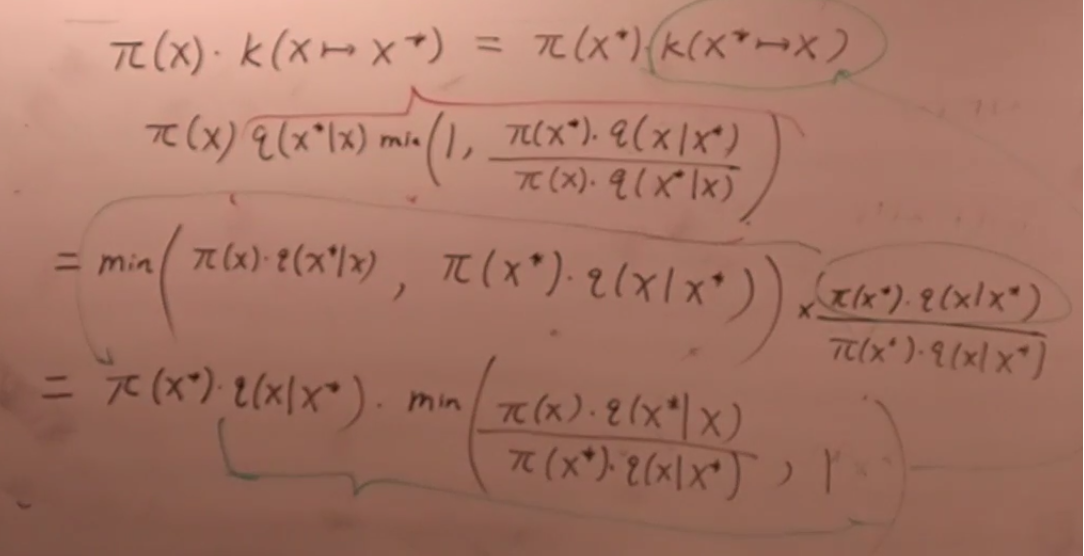 π(x)· k(x ↦ x*) = π(x*)· k(x* ↦ x)
π(x) q(x*|x) min(1, π(x*)· q(x|x*) / π(x)· q(x*|x))
= min(π(x)· q(x*|x), π(x*)· q(x|x*)) × π(x*)· q(x|x*) / π(x*)· q(x|x*)
= π(x*)· q(x|x*)· min(π(x)· q(x*|x) / π(x*)· q(x|x*), 1)